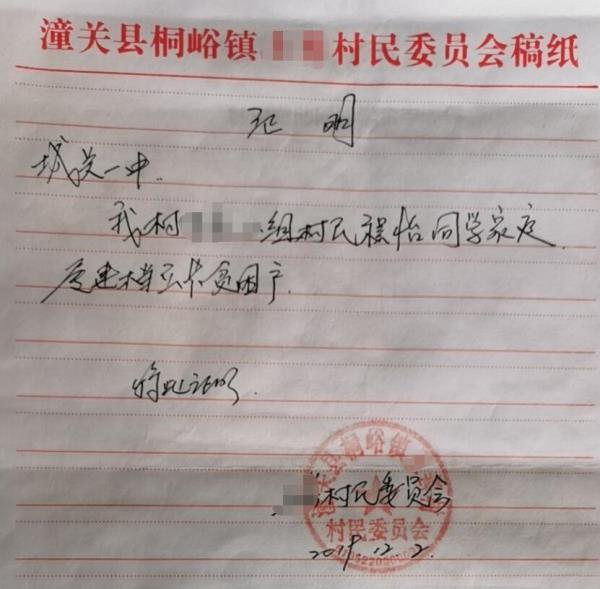 潼关县桐峪镇 村民委员会稿纸
证 明
城关一中.
我村 组村民 怡同学家庭,
属建档立卡贫困户.
特此证明.
潼关县桐峪镇
村民委员会
村民委员会
2019.12.2